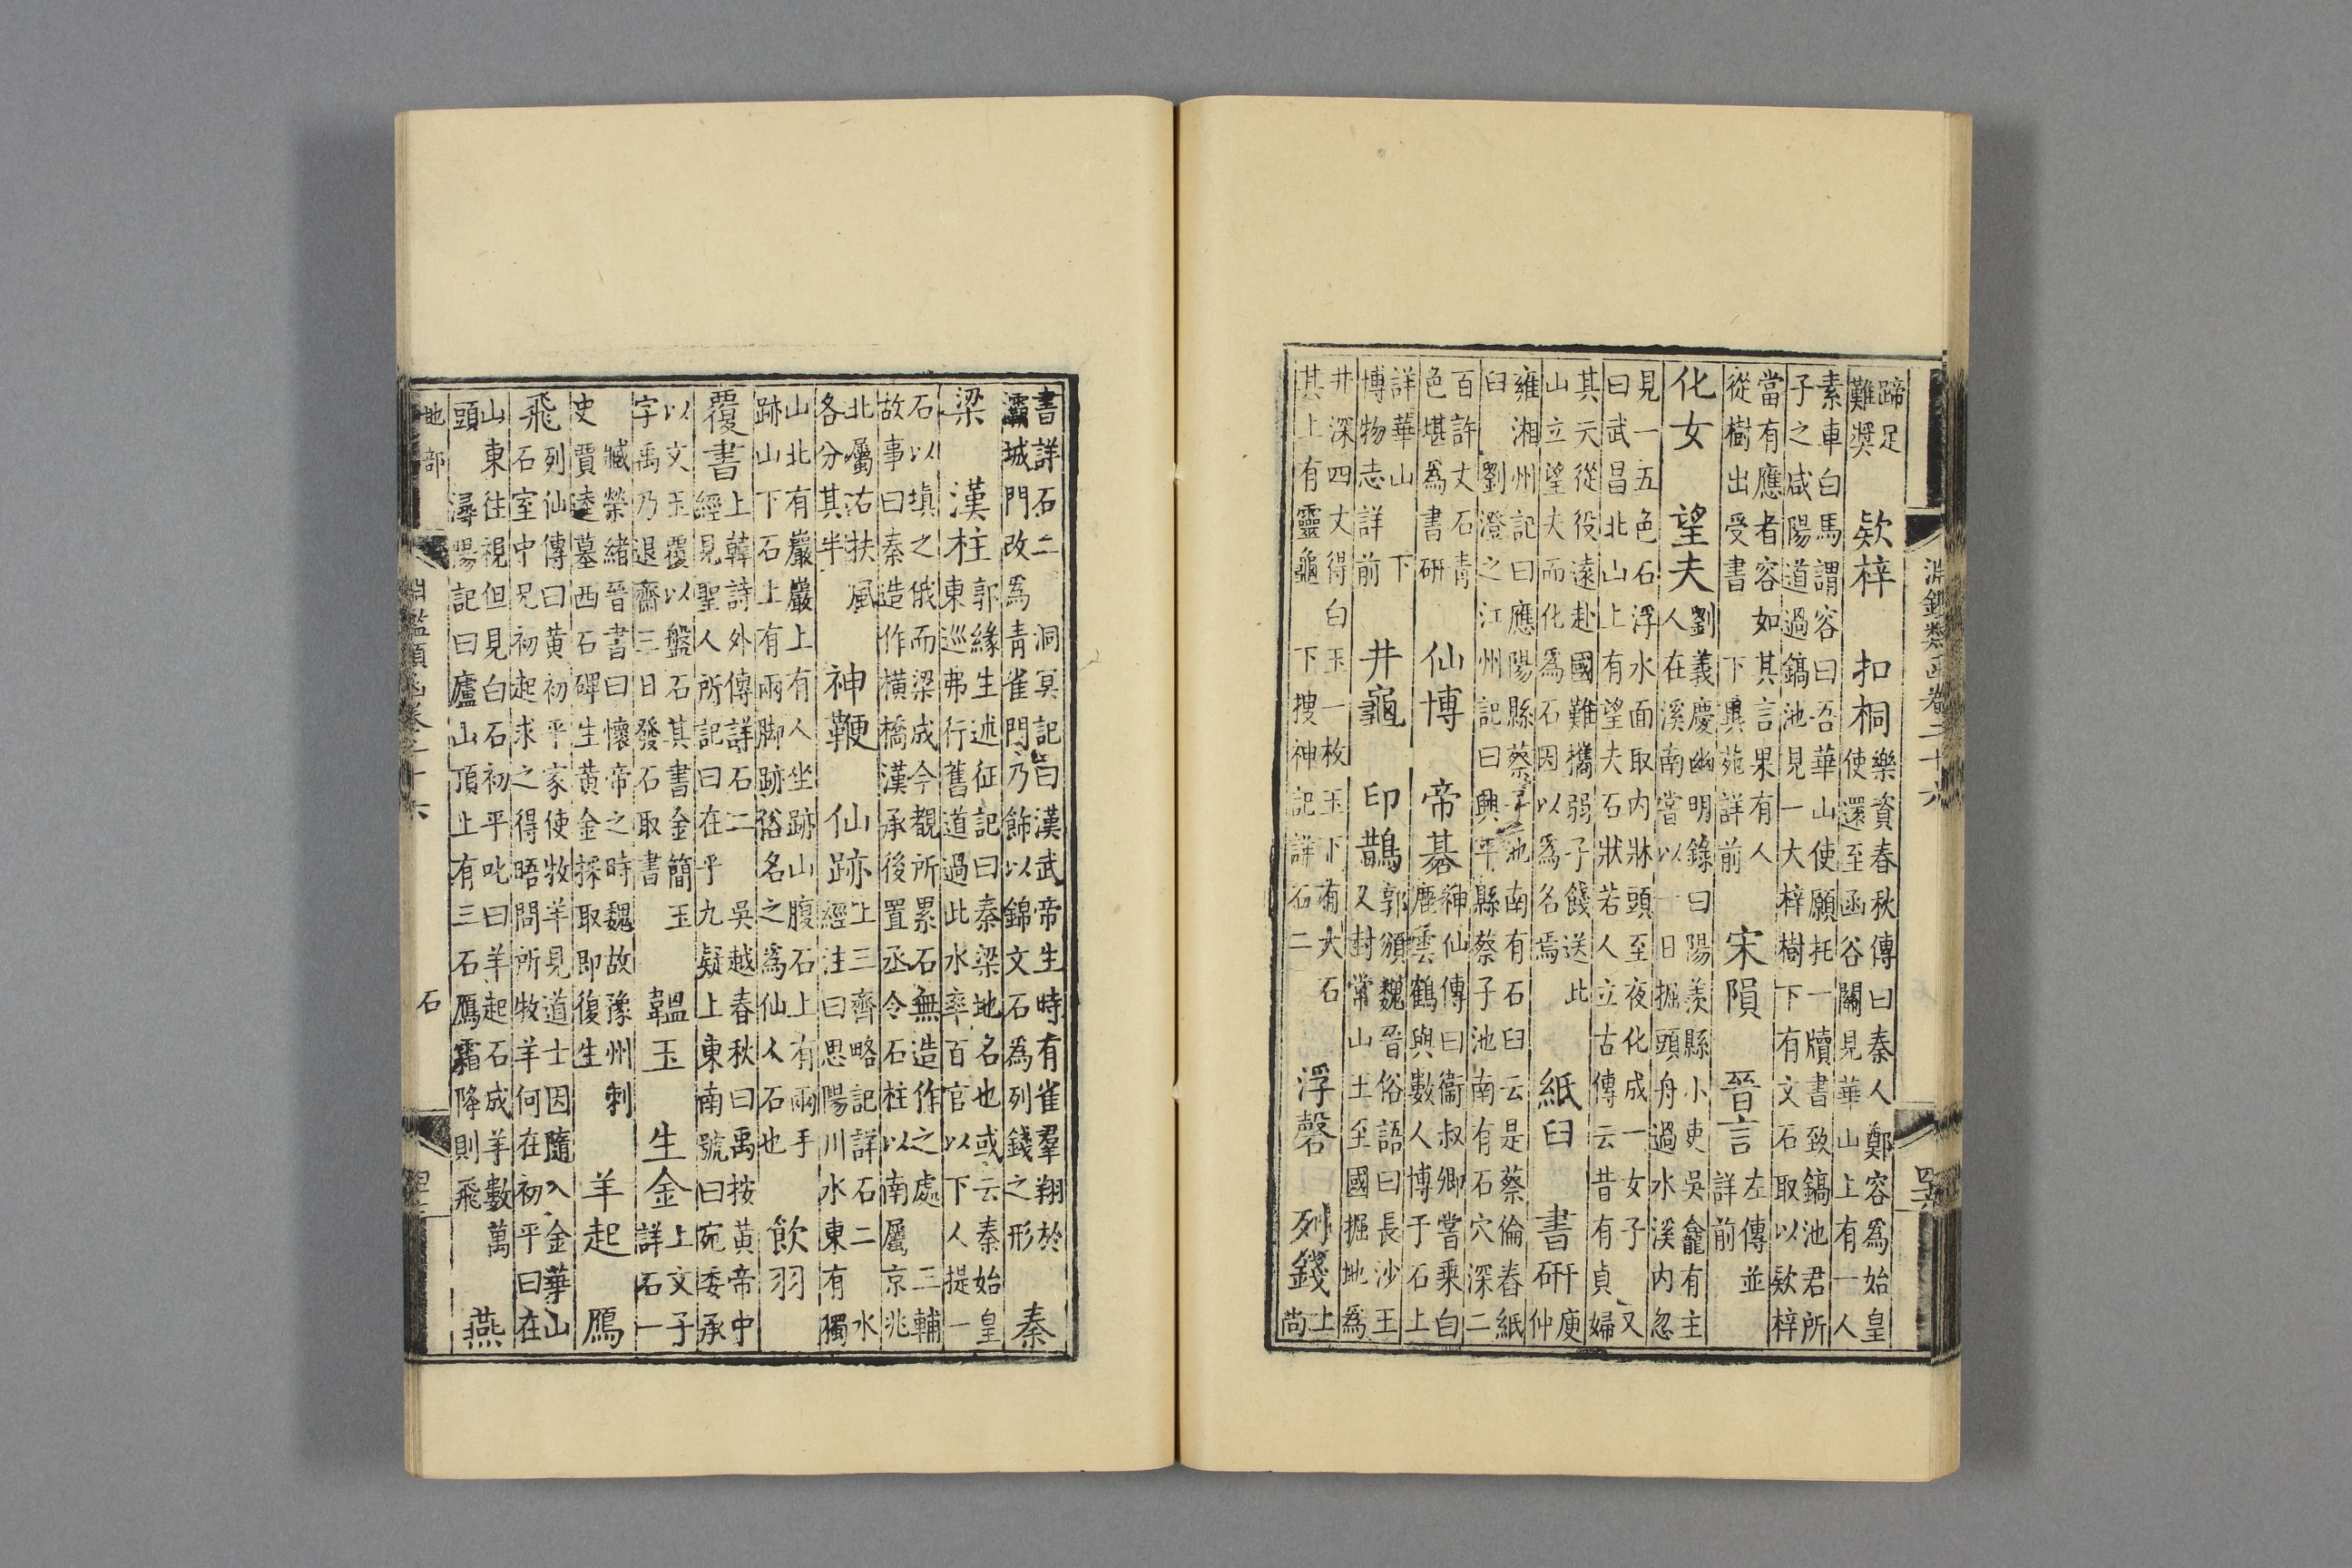 淵鑑類函卷二十六
蹄足
難奬
欵梓 扣桐
樂資春秋傳曰秦人鄭容爲始皇
使還至函谷關見華山上有一人
素車白馬謂容曰吾華山使願托一牘書致鎬池君所
子之咸陽道過鎬池見一大梓樹下有文石取以欵梓
當有應者容如其言果有人
從樹出受書 下異苑詳前
宋隕 晉言
左傳並
詳前
化女 望夫
劉義慶幽明錄曰陽羨縣小吏吳龕有主
人在溪南嘗以一日掘頭舟過水溪內忽
見一五色石浮水面取內牀頭至夜化成一女子 又
曰武昌北山上有望夫石狀若人立古傳云昔有貞婦
其夫從役遠赴國難攜弱子餞送此
山立望夫而化爲石因以爲名焉
紙臼 書研
庾
仲
雍湘州記曰應陽縣蔡子池南有石臼云是蔡倫舂紙
臼 劉澄之江州記曰興平縣蔡子池南有石穴深二
百許丈石青
色堪爲書研
仙博 帝棊
神仙傳曰衞叔卿嘗乘白
鹿雲鶴與數人博于石上
詳華山 下
博物志詳前
井龜 印鵲
郭頒魏晉俗語曰長沙王
又封常山王至國掘地爲
井深四丈得白玉一枚玉下有大石
其上有靈龜 下搜神記詳石二
浮磬 列錢
上
尚
書詳石二 洞冥記曰漢武帝生時有雀羣翔於
灞城門改爲青雀門乃飾以錦文石爲列錢之形
秦
梁 漢柱
郭緣生述征記曰秦梁地名也或云秦始皇
東巡弗行舊道過此水率百官以下人提一
石以填之俄而梁成今覩所累石無造作之處 三輔
故事曰秦造作橫橋漢承後置丞令石柱以南屬京兆
北屬右扶風
各分其半
神鞭 仙跡
上三齊略記詳石二 水
經注曰思陽川水東有獨
山北有巖巖上有人坐跡山腹石上有兩手
跡山下石上有兩脚跡俗名之爲仙人石也
飲羽
覆書
上韓詩外傳詳石二 吳越春秋曰禹按黃帝中
經見聖人所記曰在乎九疑上東南號曰宛委承
以文玉覆以盤石其書金簡玉
字禹乃退齋三日發石取書
韞玉 生金
上文子
詳石一
臧榮緒晉書曰懷帝之時魏故豫州刺
史賈逵墓西石磾生黃金採取即復生
羊起 鴈
飛
列仙傳曰黃初平家使牧羊見道士因隨入金華山
石室中兄初起求之得晤問所牧羊何在初平曰在
山東往視但見白石初平叱曰羊起石成羊數萬
頭 潯陽記曰廬山頂上有三石鴈霜降則飛
燕
地部 淵鑑類函卷二十六 石